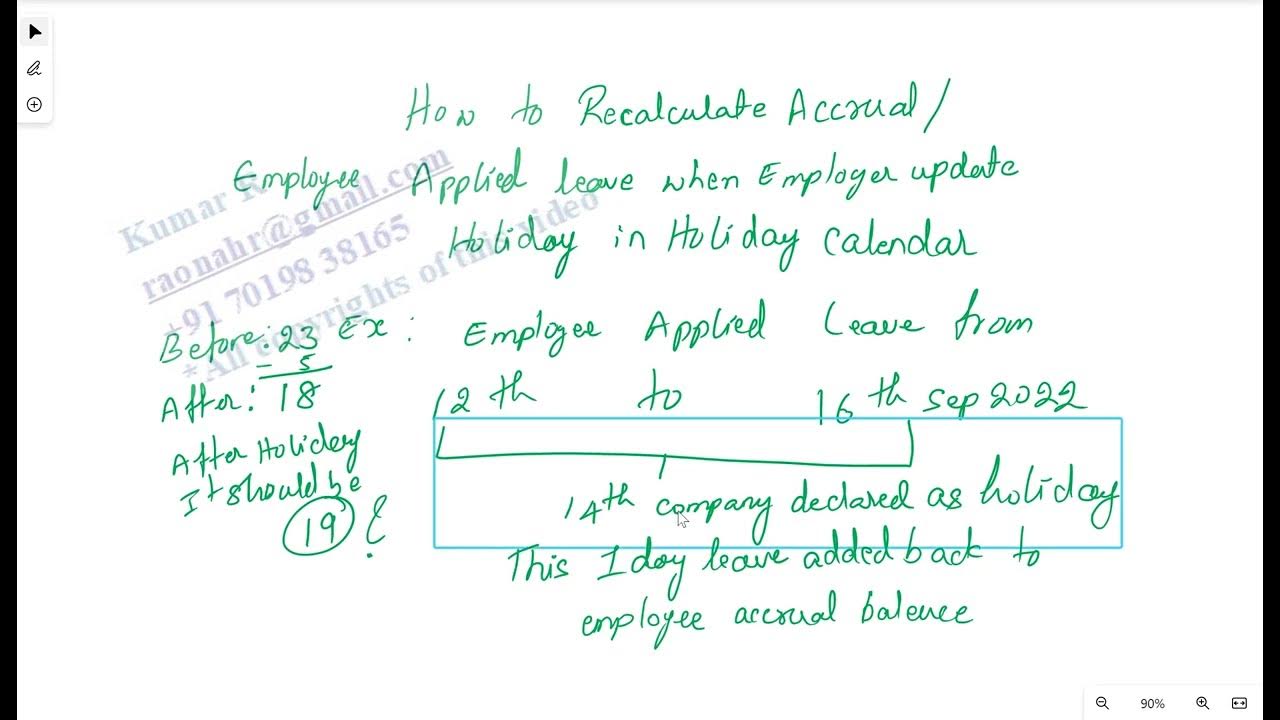 How to Recalculate Accrual /
Employee Applied leave when Employer update
Holiday in Holiday calendar
Kumar
raonahr@gmail.com
+91 70198 38165
*All copyrights of this video
Before: 23
- 5
After: 18
After Holiday
It should be
19 ?
Ex : Employee Applied Leave from
12th to 16th Sep 2022
14th company declared as holiday
This 1 day leave added back to
employee accrual balence
90%